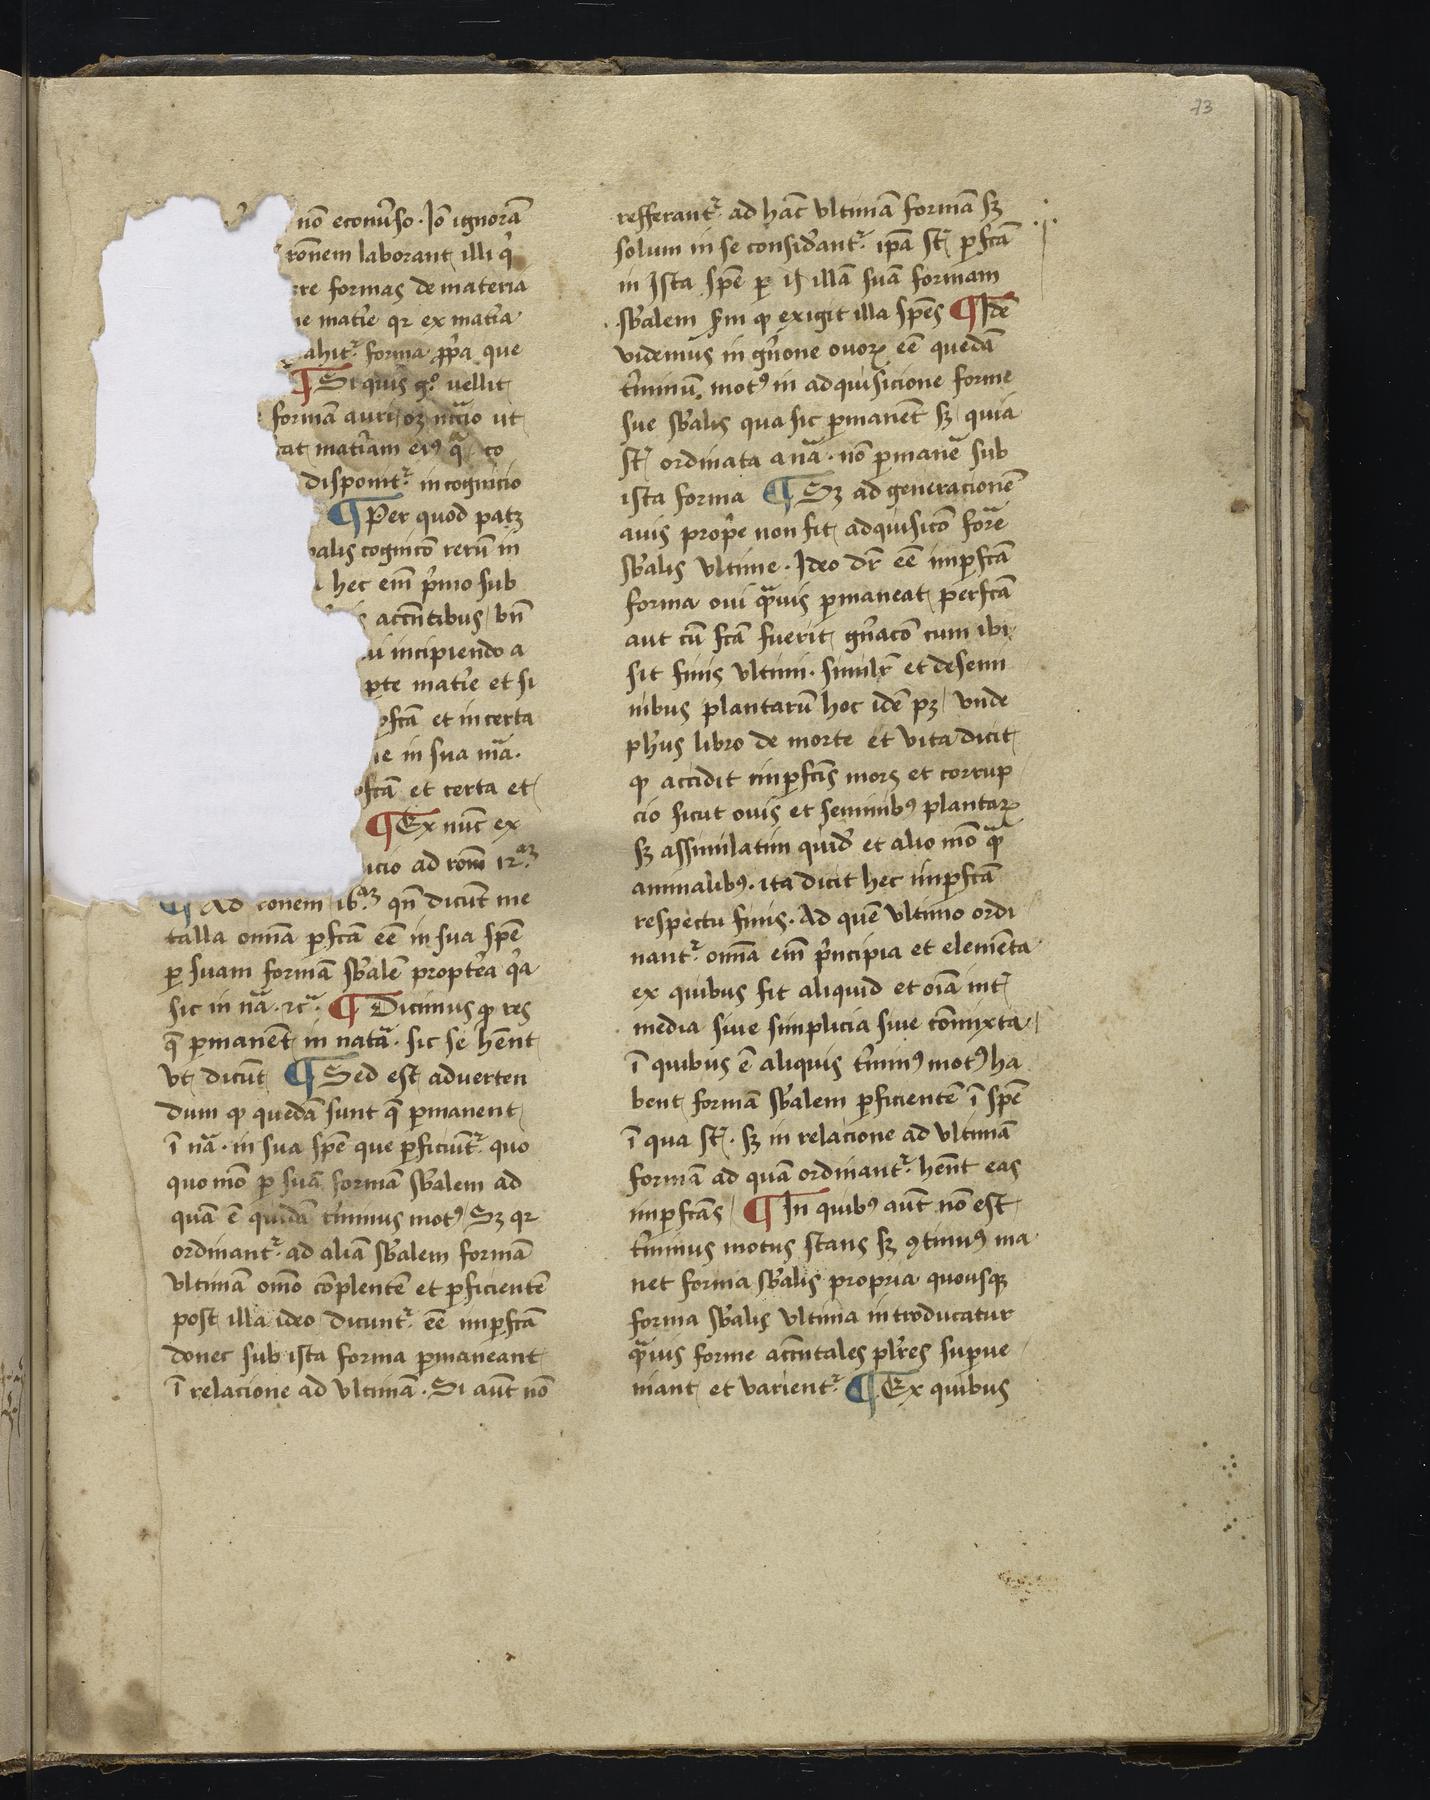 73
nō econūso · Iō ignorāt
rōnem laborant illi q̇
re formas de materia
ie matīe qr ex matīa
ahit᷑ forma p̄p̄a que
¶ Si quis gͦ vellit
formā auri oꝫ nc̄cio ut
cat matīam eiꝰ q̄ co
disponit᷑ in cognicio
¶ Per quod patꝫ
alis cognicō rerū in
hec eīm p̄mo sub
accn̄tibus bn̄
ui incipiendo a
pte matīe et si
pfcā et incerta
ie in sua nā ·
pfcā et certa et
¶ Ex nūc ex
icio ad rōm 12ᵃᵐ
¶ Ad conem 16ᵃᵐ qn̄ dicūt me
talla om̄a ꝑfcā ēe in sua spē
ꝑ suam formā sb̄alē propt̄ea q̇a
sic in nā · rc̄ᵃ ¶ Dicimus ꝙ res
q̄ ꝑmanēt in natā · sic se hēnt
vt dicūt ¶ Sed est adverten
dum ꝙ quedā sunt q̄ ꝑmanent
ī nā · in sua spē que ꝑficiūt᷑ quo
quo mō ꝑ suā formā sb̄alem ad
quā ē quidā t̄minus motꝰ Sꝫ qr
ordinant᷑ ad aliā sb̄alem formā
vltimā om̄o cōplentē et ꝑficientē
post illa ideo dicunt᷑ ēe imꝑfcā
donec sub ista forma ꝑmaneant
ī relacione ad vltimā · Si aūt nō
refferant᷑ ad hāc vltimā formā sꝫ
solum in se considānt᷑ ipā st̄ ꝑfcā
in Ista spē ꝑ illā suā formam
sb̄alem ẜm ꝙ exigit illa spēs ¶ Idē
videmus in gn̄one ovoꝝ ēe quedā
t̄minū motꝰ in adquisicione forme
sue sb̄alis qua sic ꝑmanēt sꝫ quia
st̄ ordinata a nā · nō ꝑmanē sub
ista forma ¶ Sꝫ ad generacionē
avis prop̄e non fit adquisicō forē
sb̄alis vltime · Ideo dr̄ ēe imꝑfcā
forma oui q̄uis ꝑmaneat perfcā
aut cū fcā fuerit gn̄acō cum ibi
sit finis vltimi · similr̄ et de semi
nibus plantarū hoc idē pꝫ vnde
ph̄us libro de morte et vita dicit
ꝙ accidit imꝑfcīs mors et corrup
cio sicut ovis et seminibꝰ plantaꝝ
sꝫ assimilatim quid et alio mō q̄
animalibꝰ · ita dicit hec imꝑfcā
respectu finis · Ad quē vltimo ordi
nant᷑ om̄a eīm p̄ncipia et elemēta
ex quibus fit aliquid et oīa int̄
media siue simplicia siue cōmixta
ī quibus ē aliquis t̄minꝰ motꝰ ha
bent formā sb̄alem ꝑficientē ī spē
ī qua st̄ · sꝫ in relacione ad vltimā
formā ad quā ordinant᷑ hēnt eas
imꝑfcās ¶ In quibꝰ aūt nō est
t̄minus motus stans sꝫ ꝯtinuꝰ ma
net forma sb̄alis propria quousqꝫ
forma sb̄alis vltima introducatur
q̄uis forme accn̄tales plr̄es suꝑue
niant et varient᷑ ¶ Ex quibus